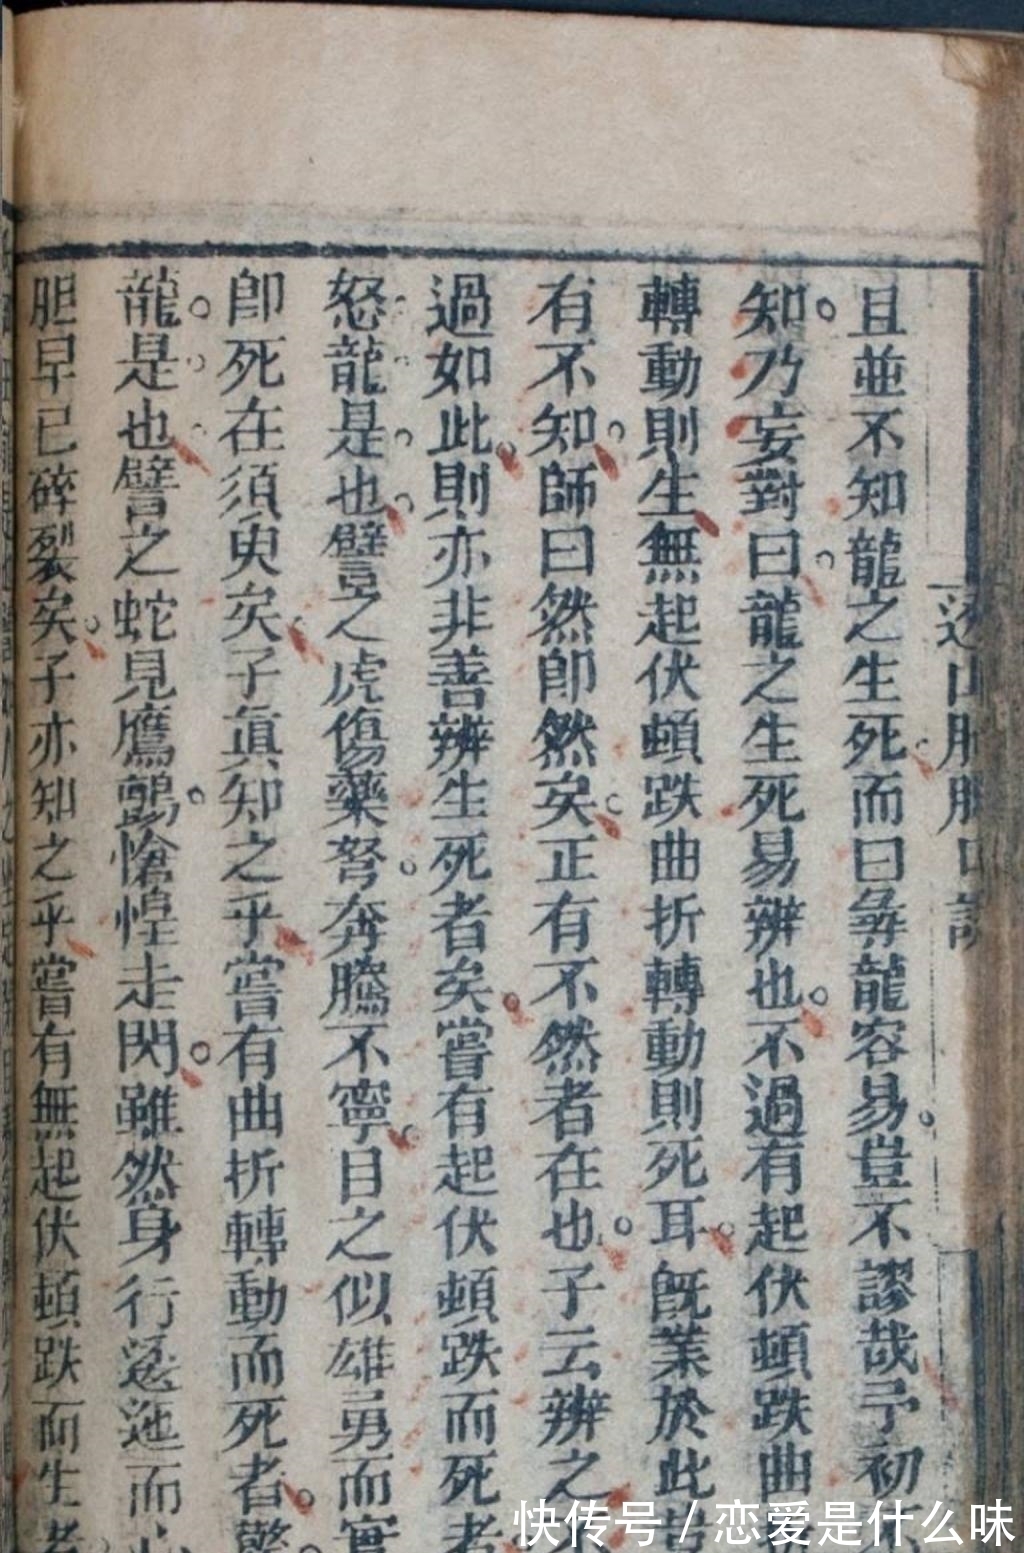 且並不知龍之生死而曰彛龍容易豈不謬哉予初
知乃妄對曰龍之生死易辨也不過有起伏頓跌曲
轉動則生無起伏頓跌曲折轉動則死耳既業於此
有不知師曰然即然矣正有不然者在也子云辨之
過如此則亦非善辨生死者矣嘗有起伏頓跌而死者
怒龍是也譬之虎傷藥弩奔騰不寧目之似雄勇而實
即死在須臾矣子眞知之乎嘗有曲折轉動而死者
龍是也譬之蛇見鷹鸇愴惶走閃雖然身行逶迤而
胆早已碎裂矣子亦知之乎嘗有無起伏頓跌而生者
快传号/恋爱是什么味